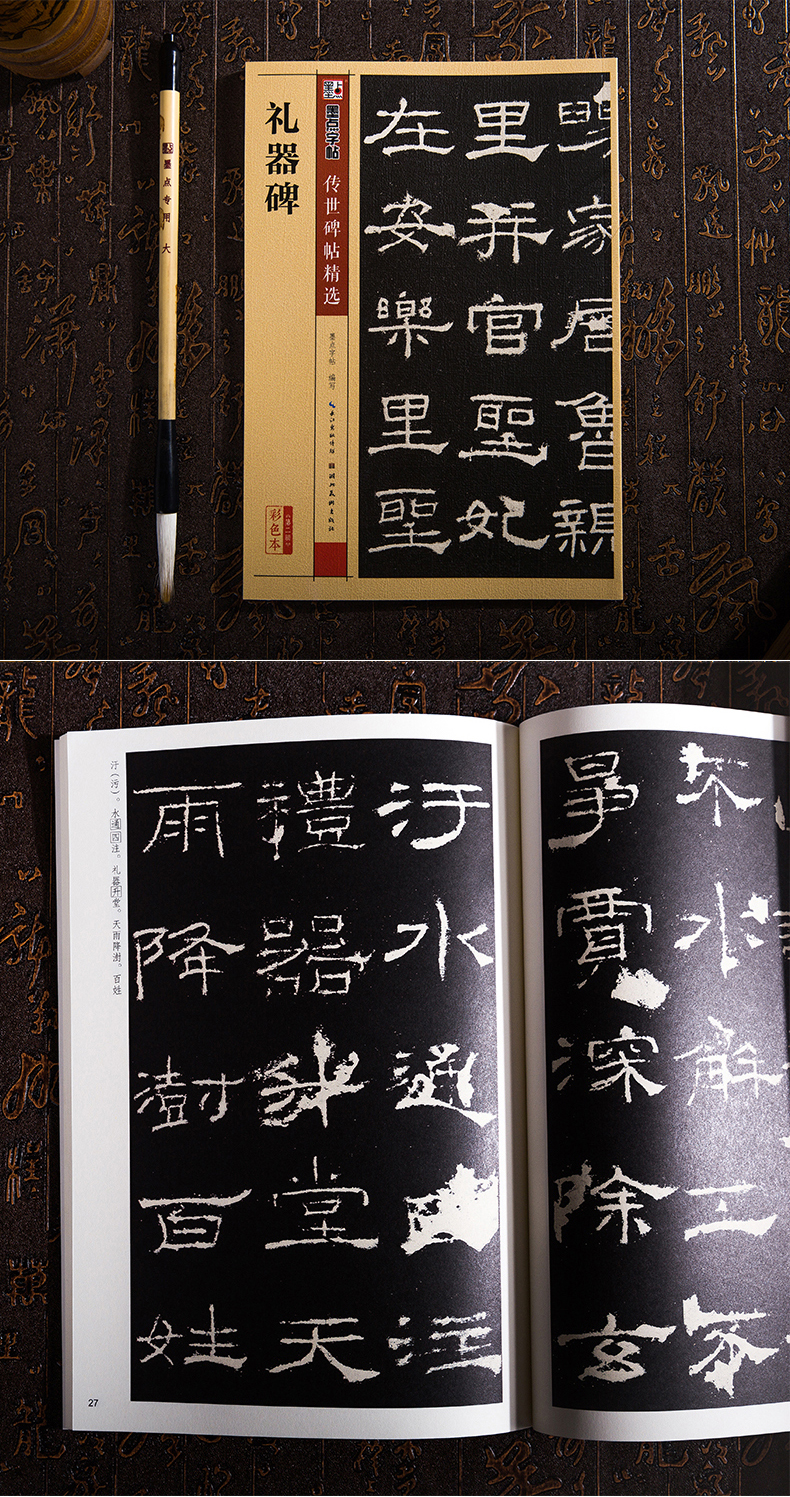 墨点专用 大
礼器碑
墨点字帖
传世碑帖精选
墨点字� 编写
长江出版传媒 湖北美术出版社
彩色本
《第二辑》
颜家居鲁亲
里并官圣妃
在安樂里聖
汙(污)。水通四注。礼器升堂。天雨降澍。百姓
汙水通
注
禮器升堂天
雨降澍百姓
27
水解工不
爭賈深除玄